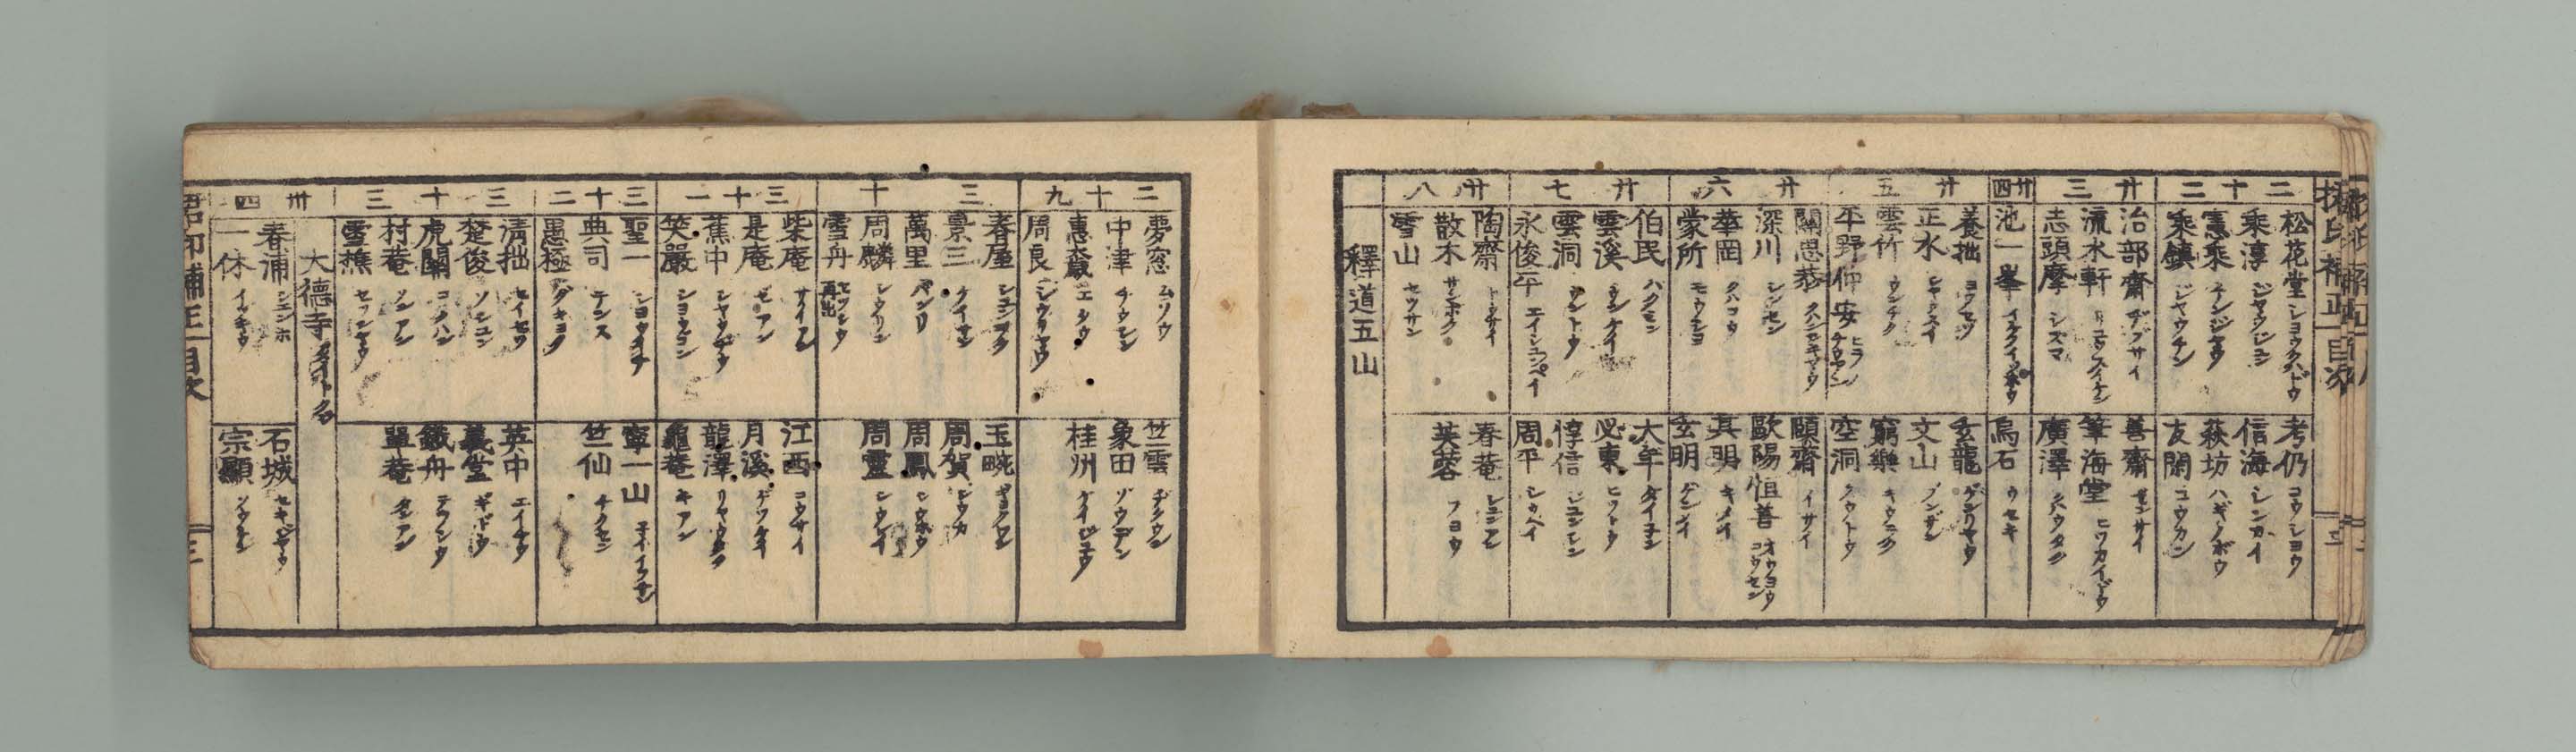 二十二
松花堂 ショウクハドウ
乘淳 ジヤウジユン
憲乘 ケンジヤウ
乘鎮 ジヤウチン
考仍 コウシヨウ
信海 シンカイ
萩坊 ハギノボウ
友閑 ユウカン
廿三
治部齋 ヂブサイ
流水軒 リユウスイケン
志頭摩 シズマ
善齋 ゼンサイ
筆海堂 ヒツカイドウ
廣澤 クハウタク
廿四
池一峯 イケイツホウ
烏石 ウセキ
廿五
養拙 ヨウセツ
正水 シヤウスイ
雲竹 ウンチク
平野仲安 ヒラノチウアン
玄龍 ゲンリヤウ
文山 ブンザン
窮樂 キウラク
空洞 クウトウ
廿六
關思恭
深川 シンセン
華岡 クハコウ
蒙所 モウシヨ
頤齋 イサイ
歐陽恒善 オウヨウコウセン
其明 キメイ
玄明 ゲンメイ
廿七
伯民 ハクミン
雲溪 ウンケイ
雲洞 ウントウ
永俊平 エイシユンペイ
大年
必東 ヒツトウ
惇信 ジユンシン
周平 シウヘイ
廿八
陶齋 トウサイ
散木 サンボク
雪山 セツサン
春菴 シユンアン
芙蓉 フヨウ
釋道五山
二十九
夢窓 ムソウ
中津 チウシン
惠巖 エガク
周良 シウリヤウ
竺雲 ヂクウン
象田 ゾウデン
桂州 ケイシユウ
三十
春屋 シユンヲク
景三 ケイサン
萬里 バンリ
周麟 シウリン
雪舟 セツシウ 再出
玉畹 ギヨクエン
周賀 シウカ
周鳳 シウホウ
周靈 シウレイ
三十一
柴庵 サイアン
是庵 ゼアン
蕉中 シヤウチウ
笑巖 シヨウガン
江西 コウサイ
月溪 ゲツケイ
龍澤 リヤウタク
龜菴 キアン
三十二
聖一 シヨウイチ
典司 テンス
愚極 グキヨク
寧一山 ネイイツサン
竺仙 チクセン
三十三
清拙 セイセツ
楚俊 ソシユン
虎關 コクハン
村菴 ソンアン
雪樵 セツシヤウ
英中 エイチウ
義堂 ギドウ
鐵舟 テツシウ
單菴 タンアン
大徳寺 ダイトクジ
卅四
春浦 シユンホ
一休 イツキウ
石城 セキジヤウ
宗顯 ソウケン
君印補正 目次
三